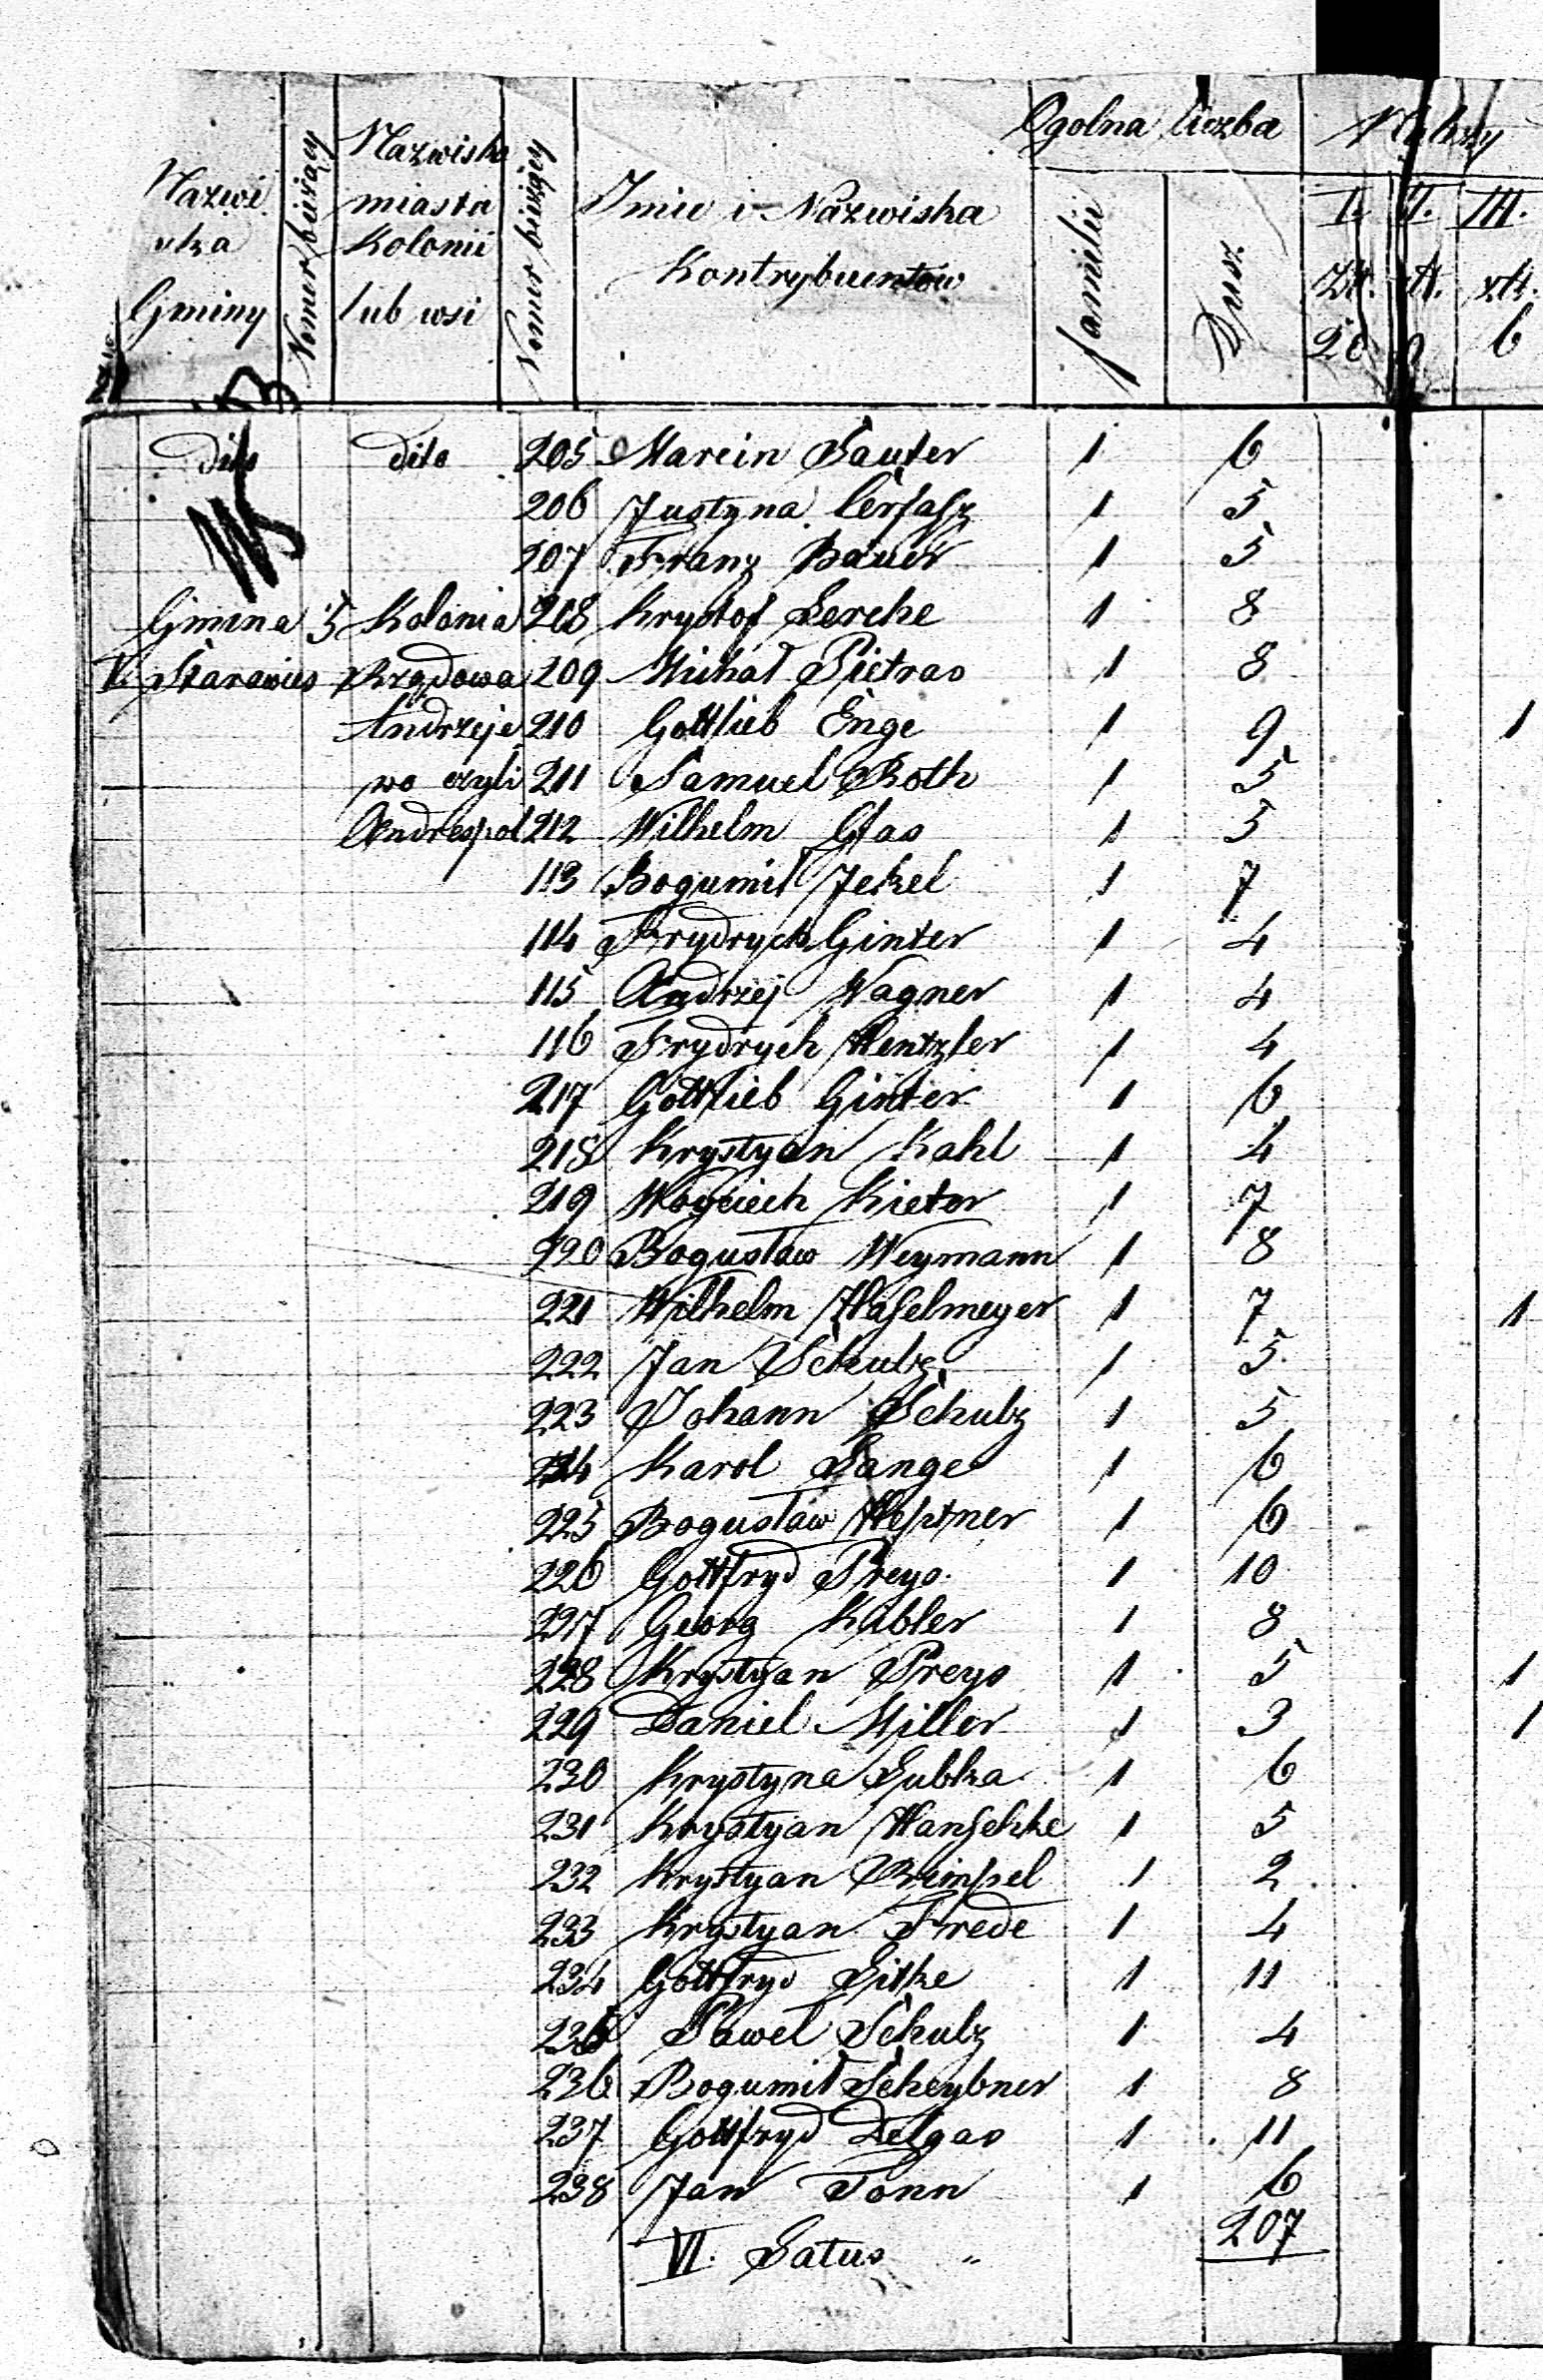 Nazwiska Gminy
Nomer bieżący
Nazwiska miasta Kolonii lub wsi
Nomer bieżący
Imie i Nazwiska Kontrybuentow
Ogolna liczba
familii
Dusz.
I. II. III.
Zł. zł. złt.
6
dito dito 205 Marcin Sauter 1 6
206 Justyna 1 5
207 Franz Bauer 1 5
Gmina 5 Kolonia 208 Krystof Lerche 1 8
V. Starawies Rządowa 209 Michał Pietras 1 8
Andrzeje 210 Gottlieb Enge 1 9 1
wo czyli 211 Samuel Roth 1 5
Andrespol 212 Wilhelm Glas 1 5
113 Bogumił Jekel 1 7
114 Frydrych Ginter 1 4
115 Andrzej Wagner 1 4
116 Frydrych Hentzler 1 4
217 Gottlieb Ginter 1 6
218 Krystyan Kahl 1 4
219 Woyciech Kieter 1 7
220 Bogusław Weymann 1 8
221 Wilhelm Haselmeyer 1 7 1
222 Jan Schulz 1 5
223 Johann Schulz 1 5
224 Karol Lange 1 6
225 Bogusław 1 6
226 Gottfryd Preys 1 10
227 Georg Kabler 1 8
228 Krystyan Preys 1 5 1
229 Daniel Miller 1 3 1
230 Krystyna Lubka 1 6
231 Krystyan Hanschke 1 5
232 Krystyan Rimpel 1 2
233 Krystyan Frede 1 4
234 Gottfryd Litke 1 11
235 Paweł Schulz 1 4
236 Bogumił Scheybner 1 8
237 Gottfryd Delgas 1 11
238 Jan Tonn 1 6
VI. Latus " 207